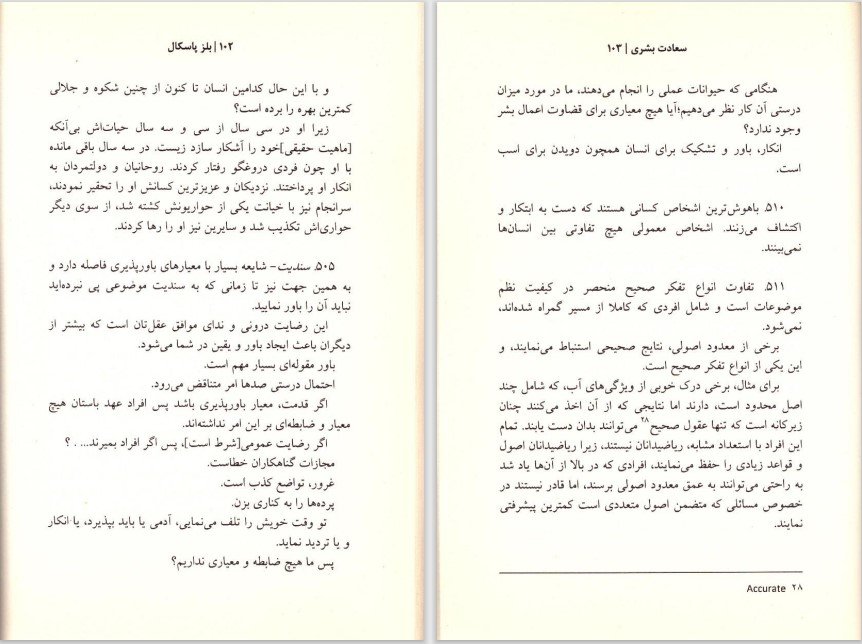 ۱۰۲ | بلز پاسکال
و با این حال کدامین انسان تا کنون از چنین شکوه و جلالی
کمترین بهره را برده است؟
زیرا او در سی سال از سی و سه سال حیات‌اش بی‌آنکه
[ماهیت حقیقی]خود را آشکار سازد زیست. در سه سال باقی مانده
با او چون فردی دروغگو رفتار کردند. روحانیان و دولتمردان به
انکار او پرداختند. نزدیکان و عزیزترین کسانش او را تحقیر نمودند،
سرانجام نیز با خیانت یکی از حواریونش کشته شد، از سوی دیگر
حواری‌اش تکذیب شد و سایرین نیز او را رها کردند.
۵۰۵. سندیت- شایعه بسیار با معیارهای باورپذیری فاصله دارد و
به همین جهت نیز تا زمانی که به سندیت موضوعی پی نبرده‌اید
نباید آن را باور نمایید.
این رضایت درونی و ندای موافق عقل‌تان است که بیشتر از
دیگران باعث ایجاد باور و یقین در شما می‌شود.
باور مقوله‌ای بسیار مهم است.
احتمال درستی صدها امر متناقض می‌رود.
اگر قدمت، معیار باورپذیری باشد پس افراد عهد باستان هیچ
معیار و ضابطه‌ای بر این امر نداشته‌اند.
اگر رضایت عمومی[شرط است]، پس اگر افراد بمیرند... . ؟
مجازات گناهکاران خطاست.
غرور، تواضع کذب است.
پرده‌ها را به کناری بزن.
تو وقت خویش را تلف می‌نمایی، آدمی یا باید بپذیرد، یا انکار
و یا تردید نماید.
پس ما هیچ ضابطه و معیاری نداریم؟
سعادت بشری | ۱۰۳
هنگامی که حیوانات عملی را انجام می‌دهند، ما در مورد میزان
درستی آن کار نظر می‌دهیم؛آیا هیچ معیاری برای قضاوت اعمال بشر
وجود ندارد؟
انکار، باور و تشکیک برای انسان همچون دویدن برای اسب
است.
۵۱۰. باهوش‌ترین اشخاص کسانی هستند که دست به ابتکار و
اکتشاف می‌زنند. اشخاص معمولی هیچ تفاوتی بین انسان‌ها
نمی‌بینند.
۵۱۱. تفاوت انواع تفکر صحیح منحصر در کیفیت نظم
موضوعات است و شامل افرادی که کاملا از مسیر گمراه شده‌اند،
نمی‌شود.
برخی از معدود اصولی، نتایج صحیحی استنباط می‌نمایند، و
این یکی از انواع تفکر صحیح است.
برای مثال، برخی درک خوبی از ویژگی‌های آب، که شامل چند
اصل محدود است، دارند اما نتایجی که از آن اخذ می‌کنند چنان
زیرکانه است که تنها عقول صحیح۲۸ می‌توانند بدان دست یابند. تمام
این افراد با استعداد مشابه، ریاضیدانان نیستند، زیرا ریاضیدانان اصول
و قواعد زیادی را حفظ می‌نمایند، افرادی که در بالا از آن‌ها یاد شد
به راحتی می‌توانند به عمق معدود اصولی برسند، اما قادر نیستند در
خصوص مسائلی که متضمن اصول متعددی است کمترین پیشرفتی
نمایند.
۲۸ Accurate